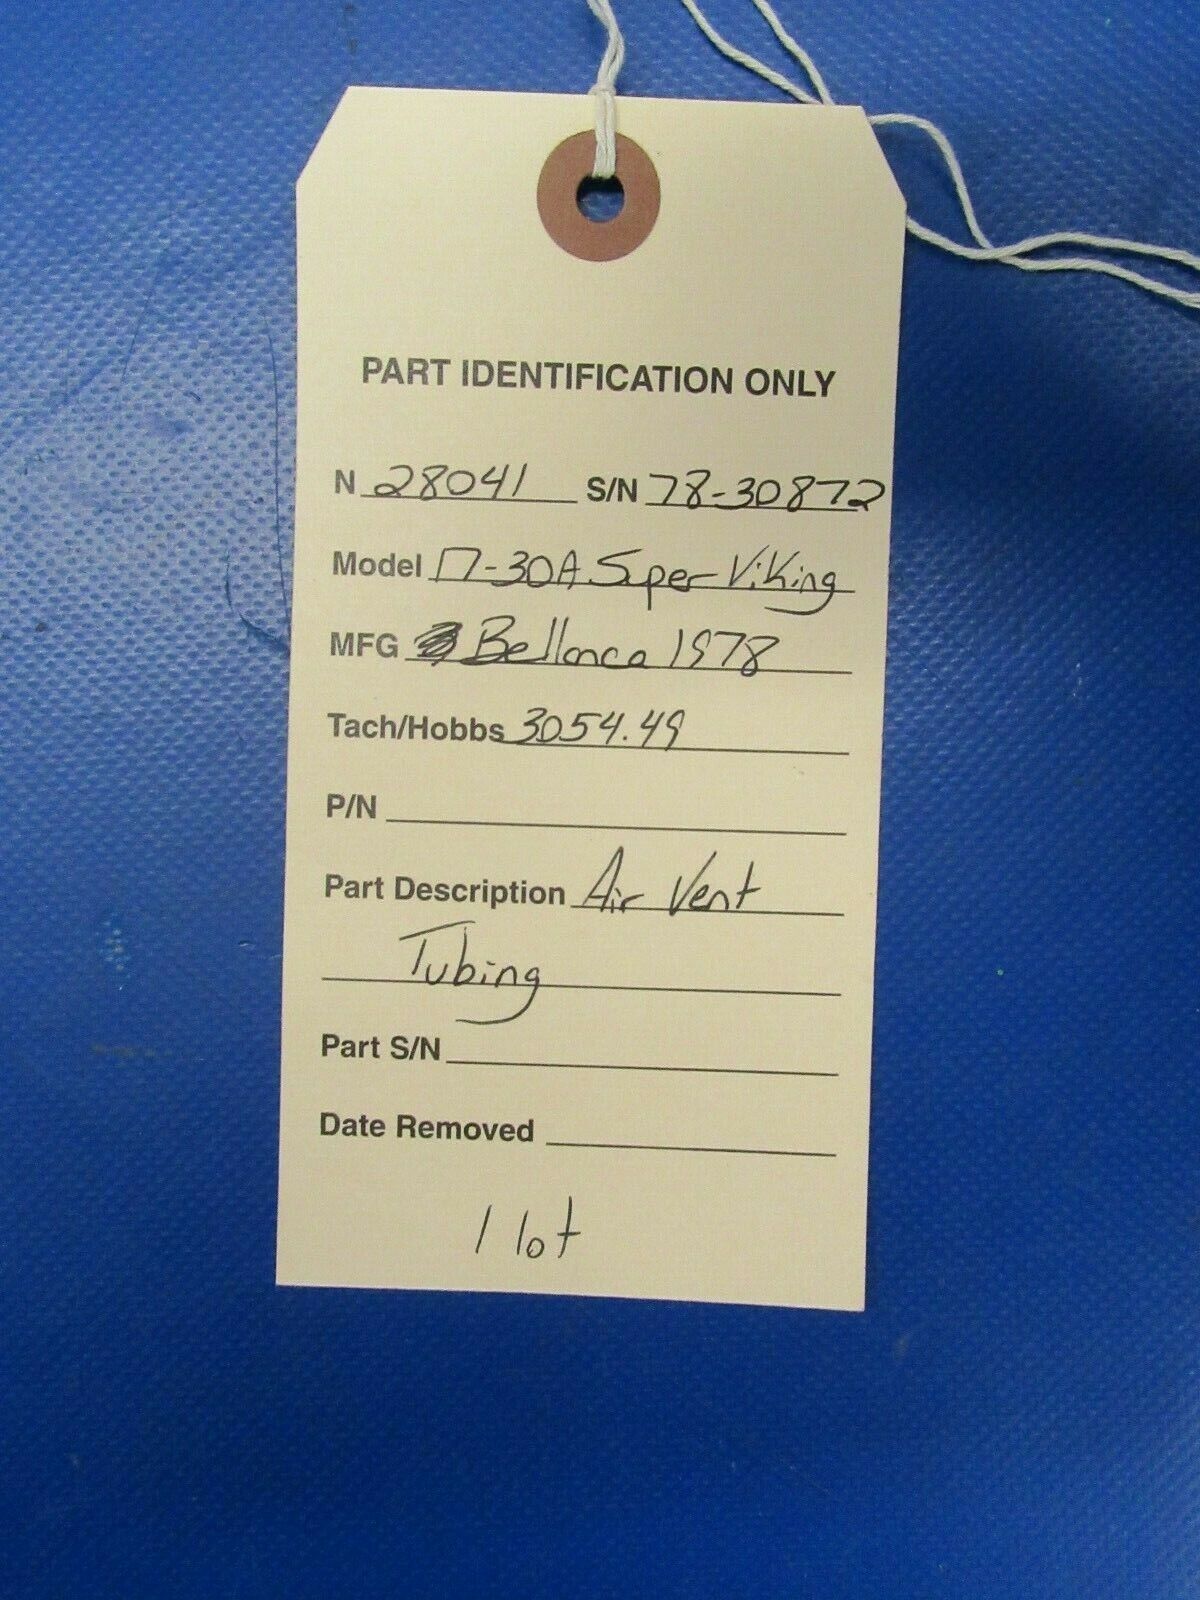 PART IDENTIFICATION ONLY
N 28041 S/N 78-30872
Model 17-30A Super Viking
MFG Bellanca 1978
Tach/Hobbs 3054.49
P/N
Part Description Air Vent
Tubing
Part S/N
Date Removed
1 lot